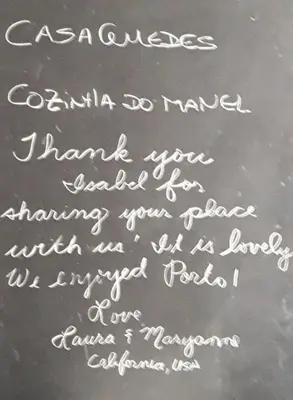 CASA GUEDES
COZINHA DO MANEL
Thank you
Isabel for
sharing your place
with us! It is lovely
We enjoyed Porto!
Love
Laura & Maryanne
California, USA